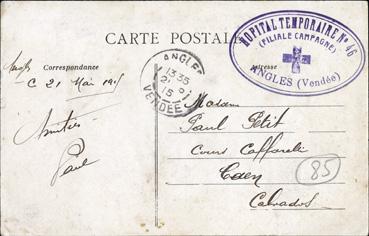 CARTE POSTALE
HOPITAL TEMPORAIRE No 46
(FILIALE CAMPAGNE)
ANGLES (Vendée)
Correspondance
Adresse
ANGLES
13 35
21 5
15
VENDEE
Angles
21 Mai 1915
Amitiés
Paul
Madame
Paul Petit
Cours Caffarelli
Caen
Calvados
85